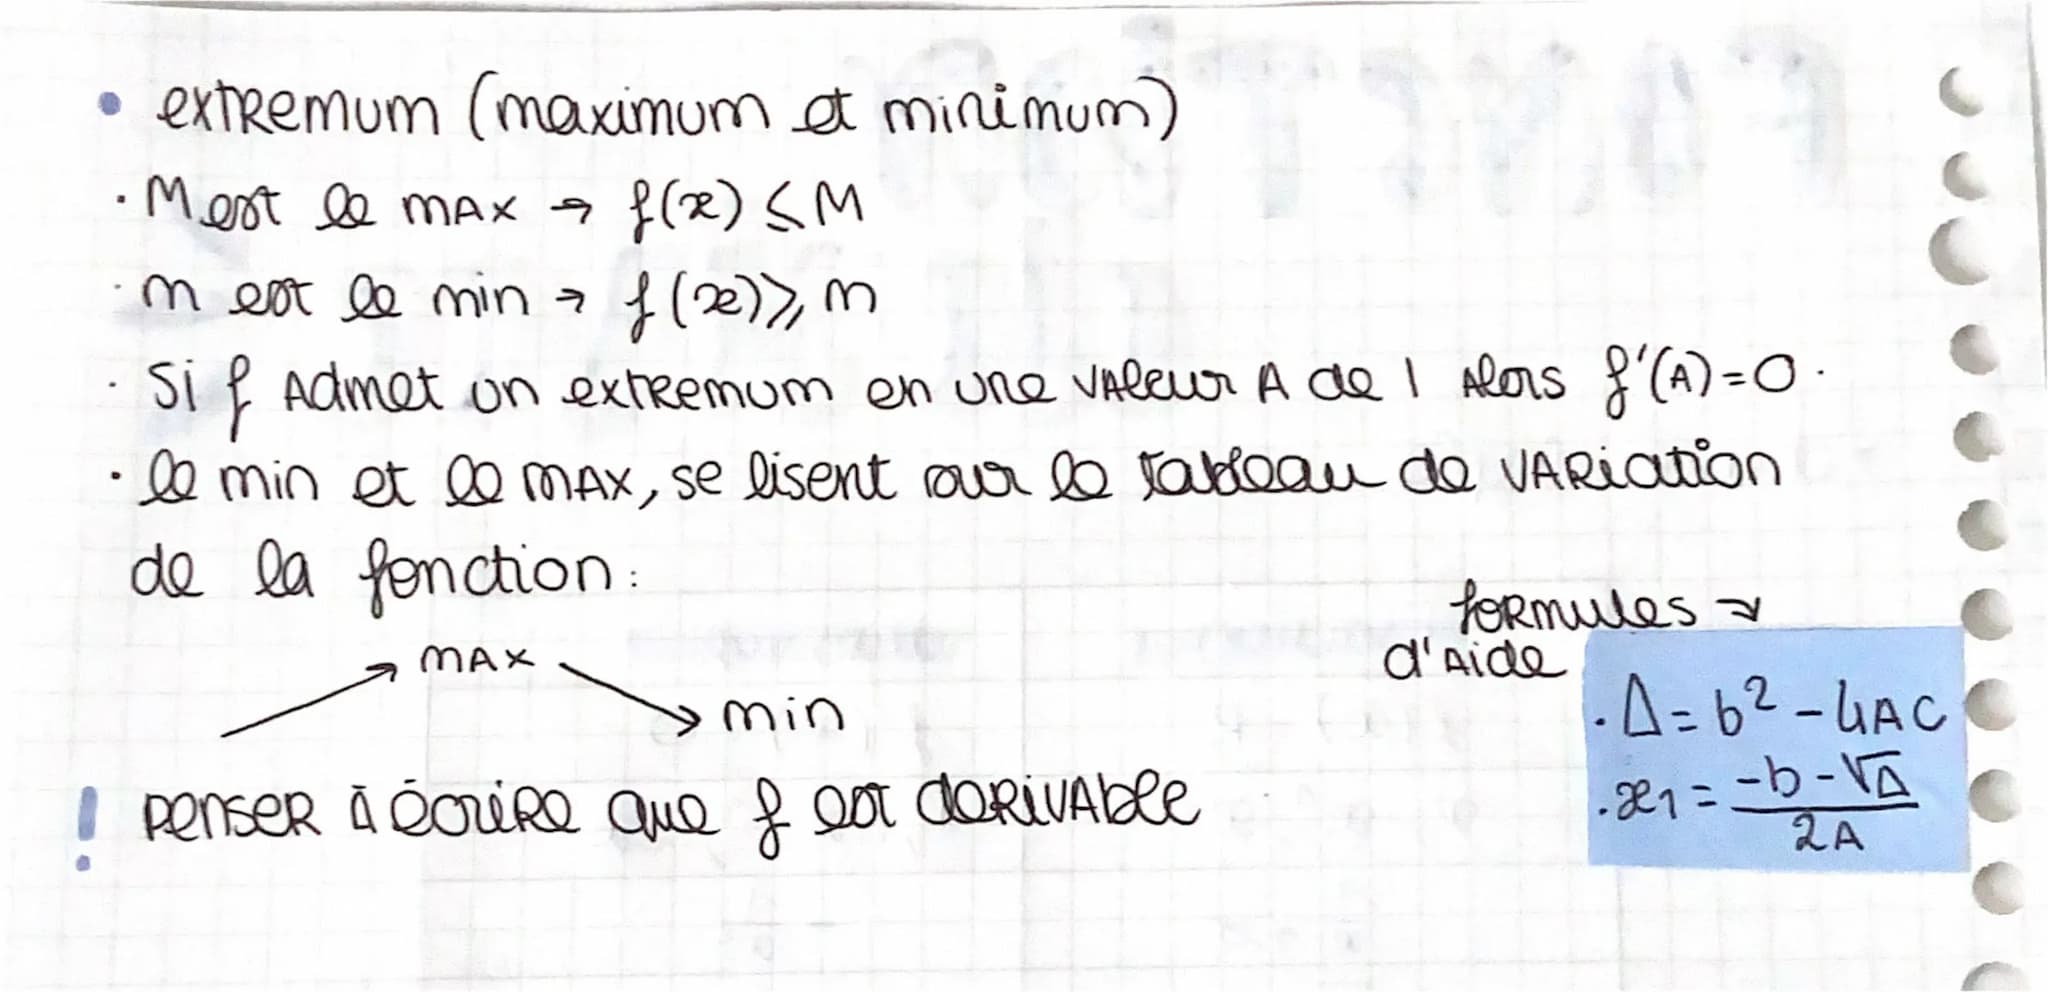 • extremum (maximum et minimum)
· M est le max → f(x) ≤ M
· m est le min → f(x) ≥ m
· Si f Admet un extremum en une vAleur A de I Alors f'(A) = 0 ·
· le min et le mAx, se lisent sur le tableau de vARiation
de la fonction :
formules →
d'Aide
mAx
min
· Δ = b² - 4AC
· x₁ = (-b - √Δ) / 2A
! penseR à écriRe que f est deRivAble